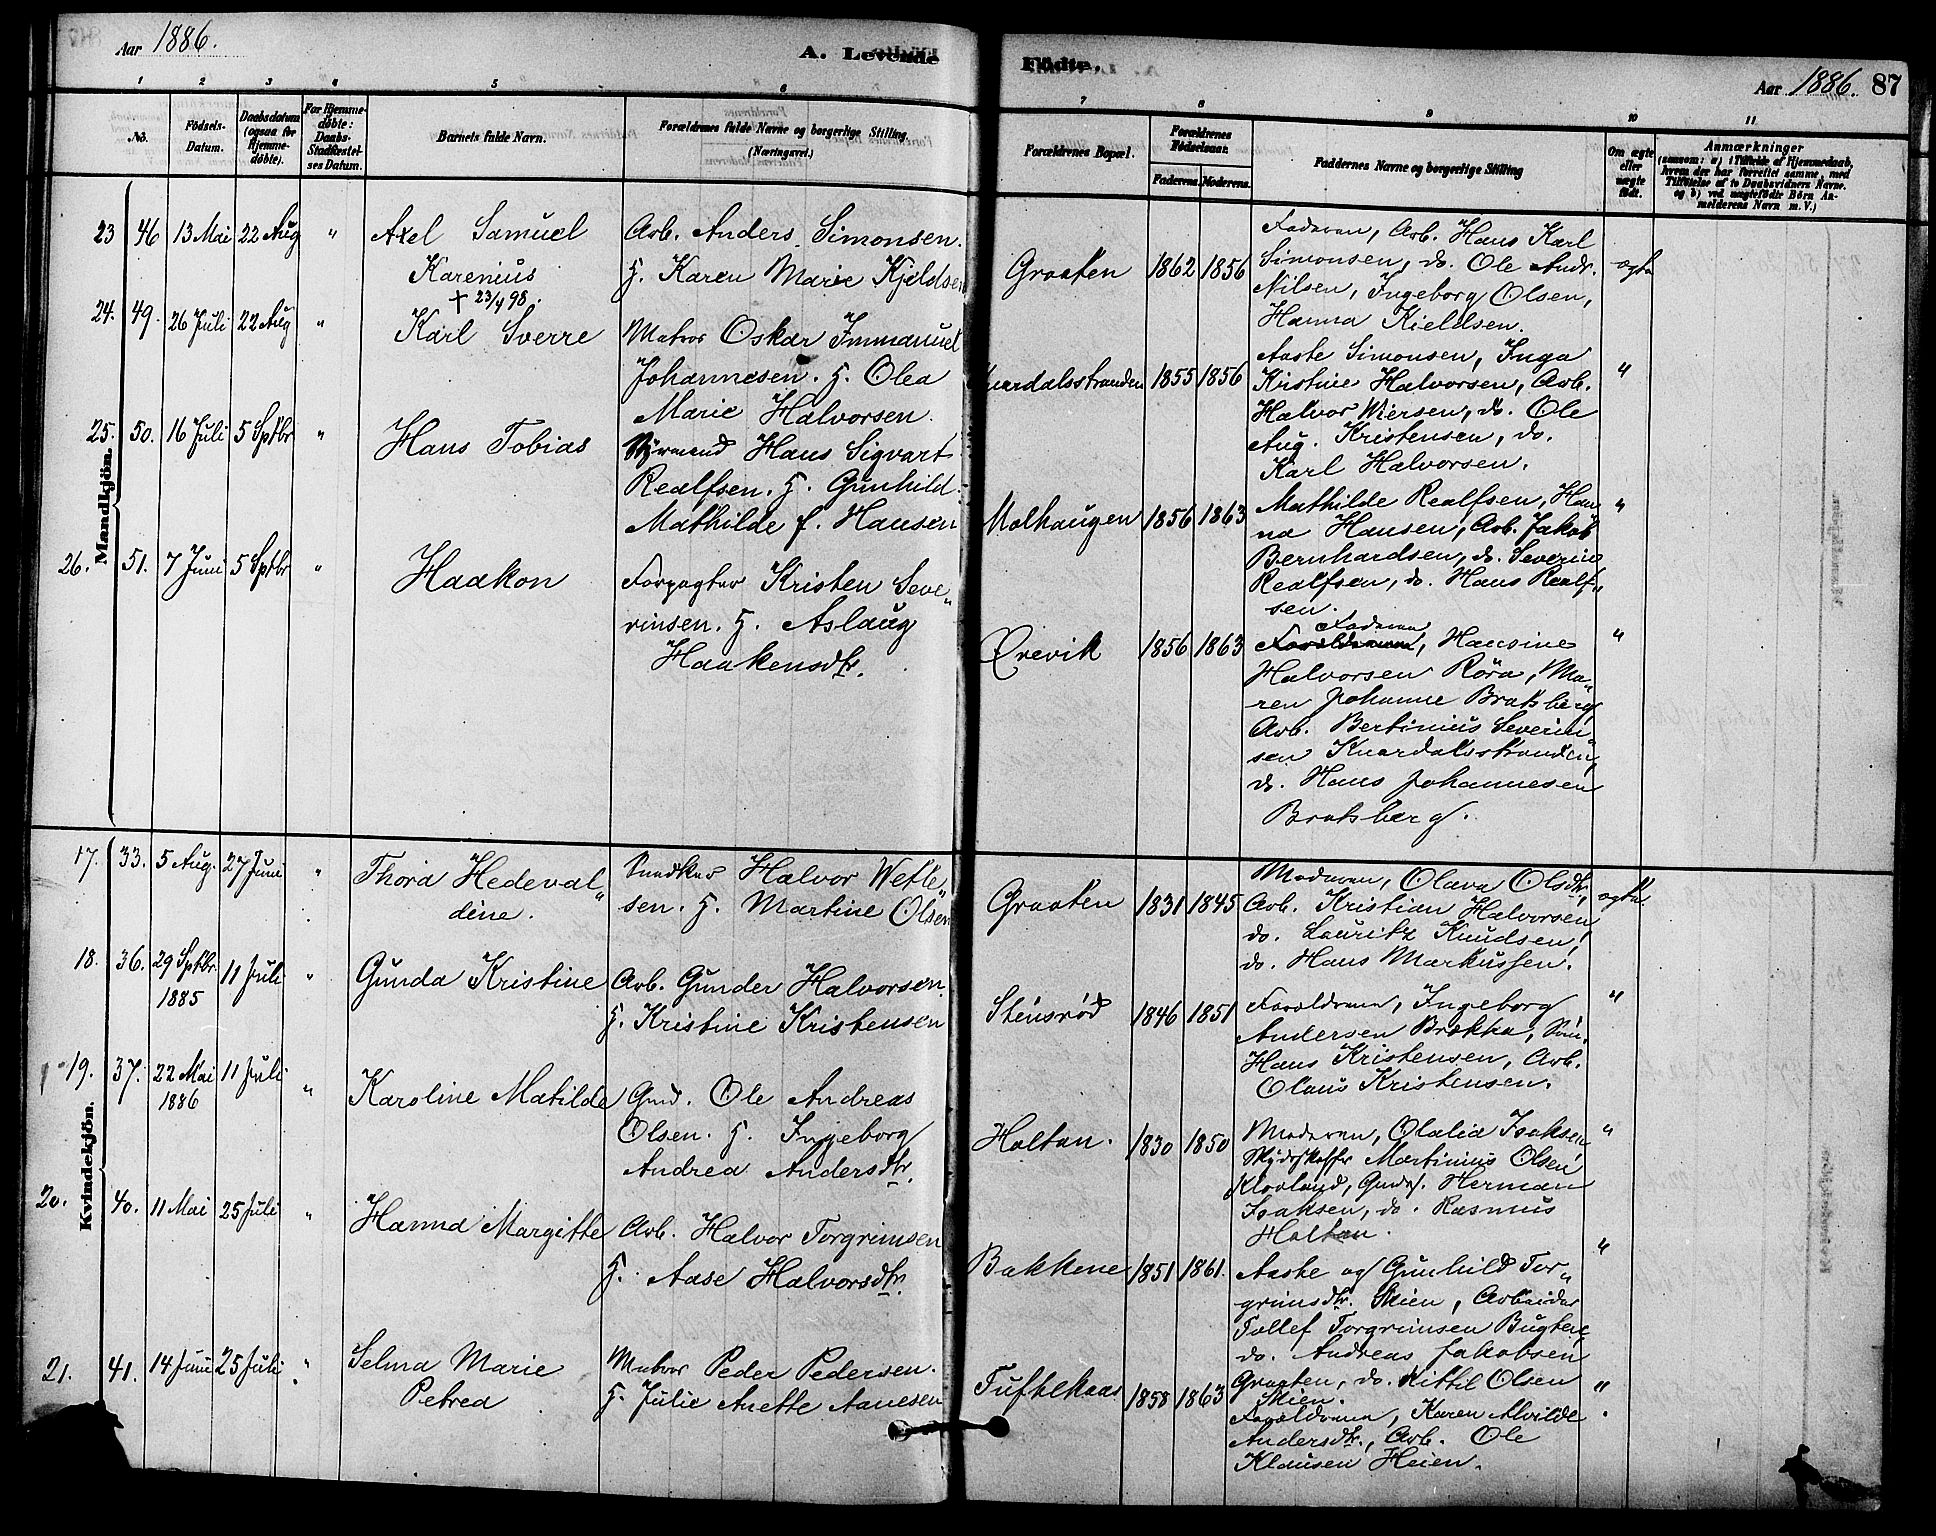 Aar 1886.
A. Levende
Födte.
Aar 1886. 87
1 2 3 4 5 6 7 8 9 10 11
No.
Födsels-
Datum.
Daabsdatum
(ogsaa for
Hjemme-
döbte).
For Hjemme-
döbte:
Daabs-
Stadfæstel-
ses Datum.
Barnets fulde Navn.
Forældrenes fulde Navne og borgerlige Stilling.
(Næringsvei.)
Forældrenes Bopæl.
Forældrenes
Födselsaar.
Faderens. Moderens.
Faddernes Navne og borgerlige Stilling
Om ægte
eller
uægte
født.
Anmærkninger
(saasom: a) i Tilfælde af Hjemmedaab,
hvem der har forrettet samme, med
Tilföielse af to Daabsvidners Navne.
og b) ved uægtefödte Börn An-
melderens Navn m. V.)
Mandkjön.
23 46 13 Mai 22 Aug "
Axel Samuel
Karenius
Arb. Anders Simonsen.
H. Karen Marie Kjeldsen
Graaten 1862 1856
Faderen, Arb. Hans Karl
Simonsen, do. Ole Andr.
Nilsen, Ingeborg Olsen,
Hanna Kieldsen.
ægte
24. 49. 26 Juli 22 Aug "
+ 23/4 98.
Karl Sverre
Matros Oskar Immanuel
Johannesen. H. Olea
Marie Halvorsen.
Knardalsstranden 1855 1856
Aaste Simonsen, Inga
Kristine Halvorsen, Arb.
Halvor Wiersen, do. Ole
Aug. Kristensen, do.
Karl Halvorsen.
"
25. 50. 16 Juli 5 Sptbr "
Hans Tobias
Styrmand Hans Sigvart
Realfsen. H. Gunhild
Mathilde f. Hansen
Molhaugen 1856 1863
Mathilde Realfsen, Han
na Hansen, Arb. Jakob
Bernhardsen, do. Severin
Realfsen, do. Hans Realf-
sen.
"
26. 51. 7 Juni 5 Sptbr "
Haakon
Forpagter Kristen Seve-
rinsen. H. Aslaug
Haakensdtr.
Ørevik 1856 1863
Faderen
Forældrene, Hansine
Halvorsen Röra, Ma-
ren Johanne Bratsberg
Arb. Bertinius Severin-
sen Knardalsstranden,
do. Hans Johannesen
Bratsberg.
"
Kvindekjön.
17. 33. 5 Aug. 27 Juni "
Thora Hedeval-
dine.
Snedker Halvor Wetle-
sen. H. Martine Olsen
Graaten 1831 1845
Moderen, Olava Olsdtr,
Arb. Kristian Halvorsen,
do. Lauritz Knudsen,
do. Hans Markussen.
ægte
18. 36. 29 Sptbr 11 Juli "
1885
Gunda Kristine
Arb. Gunder Halvorsen.
H. Kristine Kristensen
Stensrød 1846 1851
Forældrene, Ingeborg
Andersen Brækka,
Hans Kristensen, Arb.
Olaus Kristensen.
"
19. 37. 22 Mai 11 Juli "
1886
Karoline Matilde
Gmd. Ole Andreas
Olsen. H. Ingeborg
Andrea Andersdtr.
Holtan. 1830 1850
Moderen, Olalia Isaksen
Skydsskaffer Martinius Olsen
Klovland, Gmds. Herman
Isaksen, do. Rasmus
Holtan.
"
20. 40. 11 Mai 25 Juli "
Hanna Margitte
Arb. Halvor Torgrimsen
H. Aase Halvorsdtr.
Bakkene 1851 1861.
Aaste og Gunhild Tor-
grimsdtr. Skien, Arbeider
Tollef Torgrimsen Bugten,
do. Andreas Jakobsen
Graaten, do. Kittil Olsen
Skien.
"
21. 41. 14 Juni 25 Juli "
Selma Marie
Petrea
Matros Peder Pedersen.
H. Julie Anette Aanesen
Tuftekaas 1858 1863
Forældrene, Karen Alvilde
Andersdtr., Arb. Ole
Klausen Heien.
"